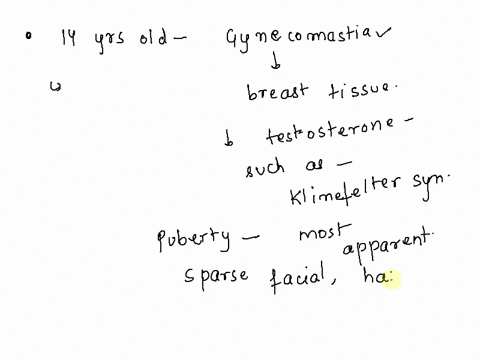 • 14 yrs old - Gynecomastia ✓
↓
breast tissue.
↓ testosterone -
such as -
Klinefelter syn.
Puberty - most apparent.
sparse facial, hai